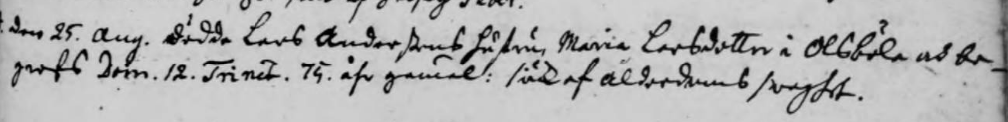 den 25. Aug. dödde Lars Anderssons hustru, Maria Larsdotter i Olsböle och be-
grofs Dom. 12. Trinit. 75. åhr gamal: af ålderdoms swaghet.